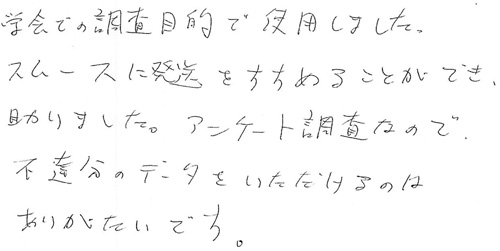 学会での調査目的で使用しました。
スムースに発送をすすめることができ、
助かりました。アンケート調査なので、
不達分のデータをいただけるのは
ありがたいです。